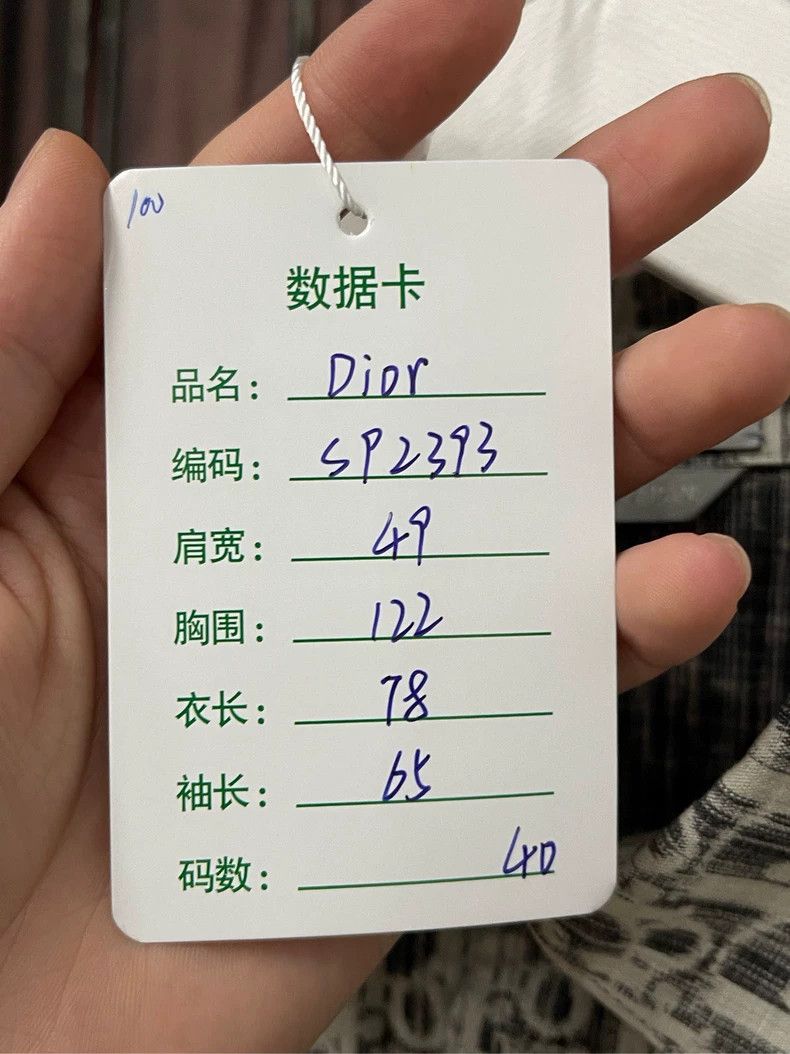 100
数据卡
品名: Dior
编码: SP2393
肩宽: 49
胸围: 122
衣长: 78
袖长: 65
码数: 40